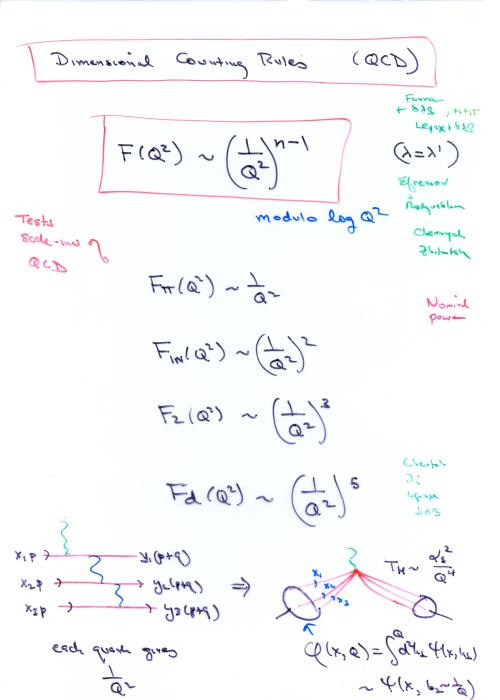 Dimensional Counting Rules (QCD)
Farrar
+ SJB, MMT
Lepage + SJB
F(Q²) ~ (1/Q²)ⁿ⁻¹
(λ=λ')
Efremov
+ Radyushkin
modulo log Q²
Chernyak
Zhitnitsky
Tests
scale-inv of
QCD
F_π(Q²) ~ 1/Q²
Nominal
power
F_1N(Q²) ~ (1/Q²)²
F_2(Q²) ~ (1/Q²)³
F_d(Q²) ~ (1/Q²)⁵
Ji
Lepage
SJB
x₁p y₁(p+q)
x₂p y₂(p+q) ⇒
x₃p y₃(p+q)
x₁ x₂ x₃
T_H ~ α_s²/Q⁴
each quark gives
1/Q²
φ(x,Q) = ∫^Q d²k_⊥ ψ(x,k_⊥)
~ ψ(x, b_⊥ ~ 1/Q)